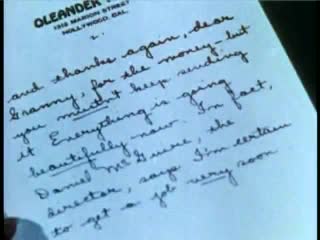 OLEANDER
1319 MARION STREET
HOLLYWOOD, CAL.
2.
and thanks again, dear
Granny, for the money - but
you mustn't keep sending
it. Everything is going
beautifully now. In fact,
Daniel McGuire, the
director, says I'm certain
to get a job very soon